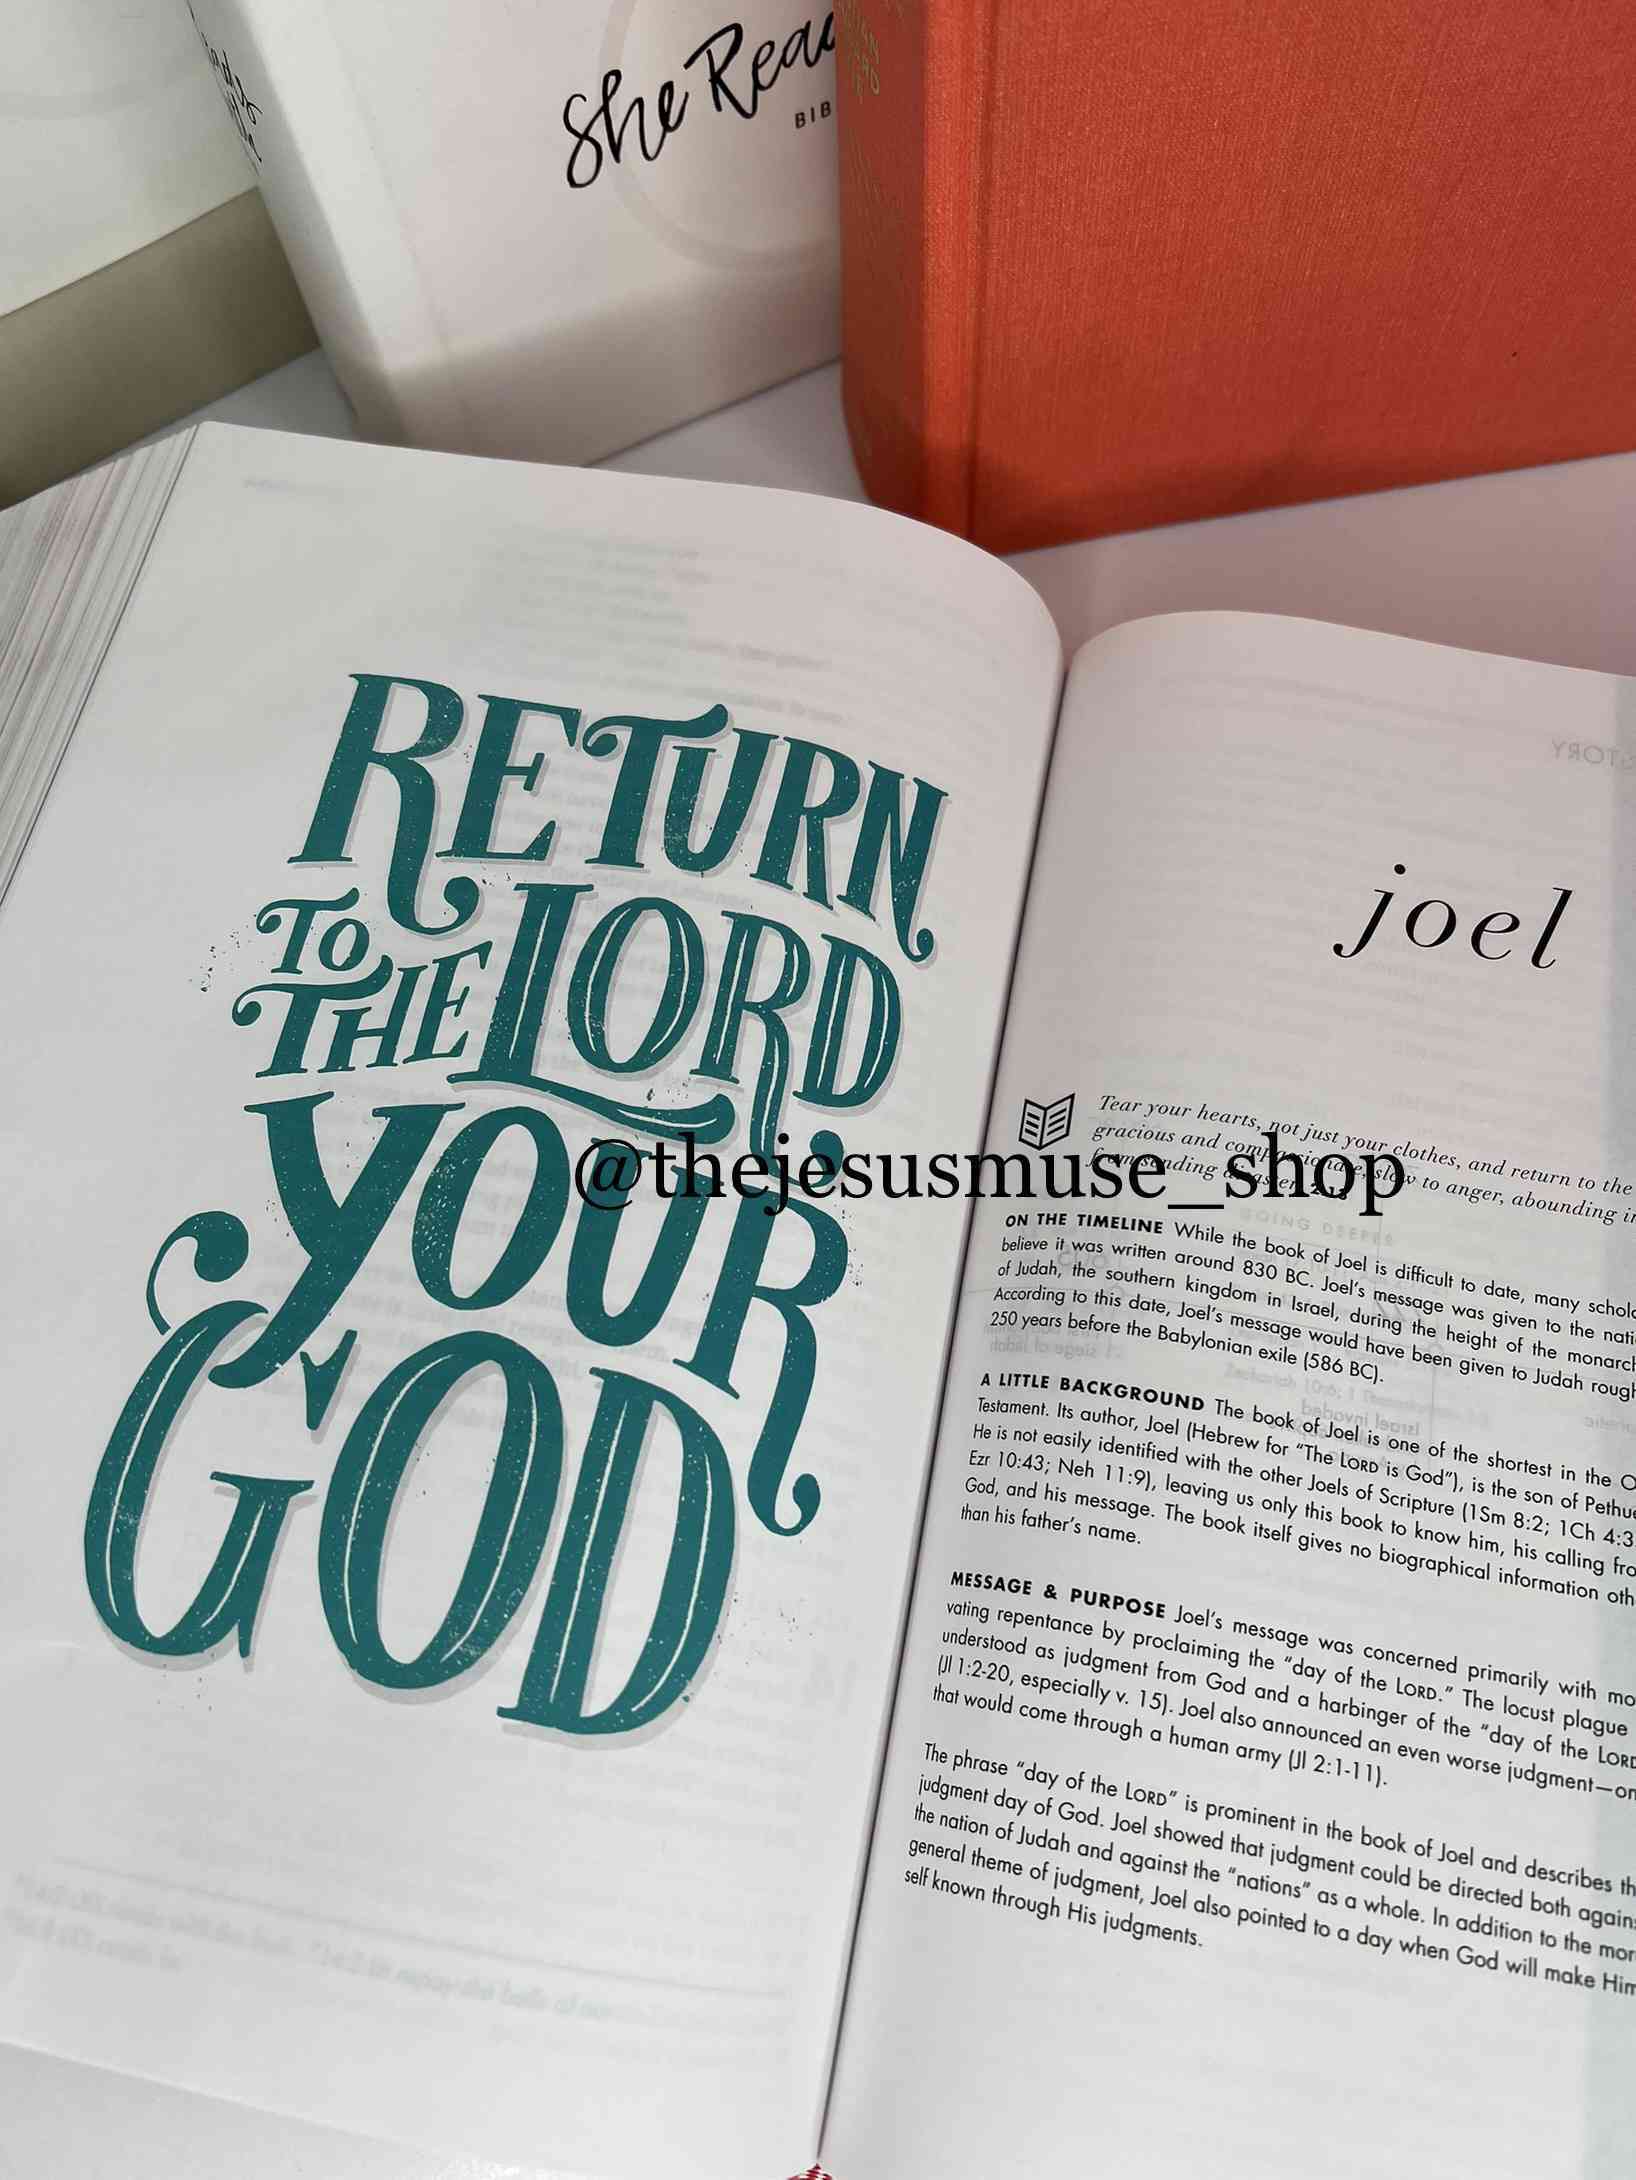 She Read
BIB
RETURN
TO
THE LORD
YOUR
GOD
joel
Tear your hearts, not just your clothes, and return to the
gracious and compassionate, slow to anger, abounding in
from sending disaster. 2:13
@thejesusmuse_shop
ON THE TIMELINE While the book of Joel is difficult to date, many schola
believe it was written around 830 BC. Joel's message was given to the nati
of Judah, the southern kingdom in Israel, during the height of the monarch
According to this date, Joel's message would have been given to Judah rough
250 years before the Babylonian exile (586 BC).
A LITTLE BACKGROUND The book of Joel is one of the shortest in the O
Testament. Its author, Joel (Hebrew for “The LORD is God”), is the son of Pethue
He is not easily identified with the other Joels of Scripture (1Sm 8:2; 1Ch 4:3
Ezr 10:43; Neh 11:9), leaving us only this book to know him, his calling fro
God, and his message. The book itself gives no biographical information oth
than his father's name.
MESSAGE & PURPOSE Joel's message was concerned primarily with mo
vating repentance by proclaiming the “day of the LORD.” The locust plague
understood as judgment from God and a harbinger of the “day of the LORD
(Jl 1:2-20, especially v. 15). Joel also announced an even worse judgment—on
that would come through a human army (Jl 2:1-11).
The phrase “day of the LORD” is prominent in the book of Joel and describes th
judgment day of God. Joel showed that judgment could be directed both again
the nation of Judah and against the “nations” as a whole. In addition to the mor
general theme of judgment, Joel also pointed to a day when God will make Him
self known through His judgments.